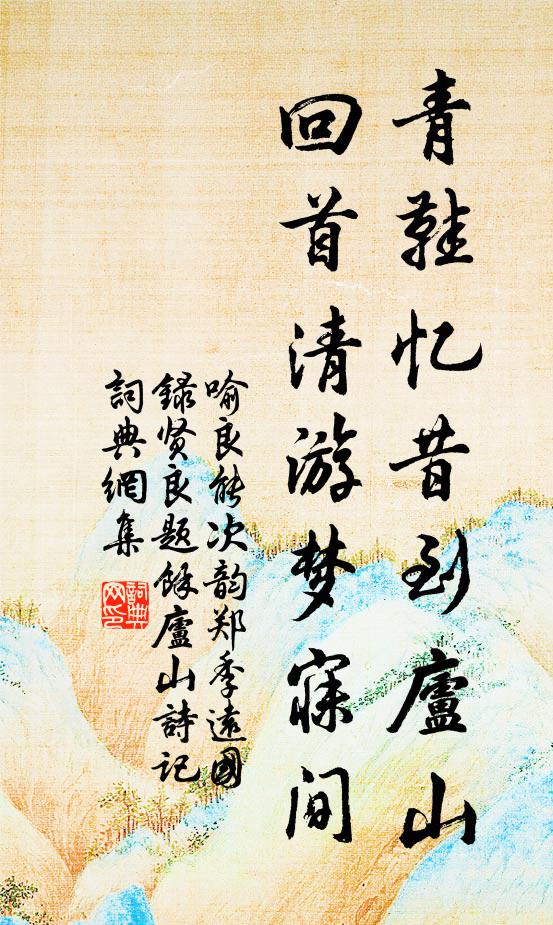 青鞋忆昔到廬山
回首清游梦寐间
喻良能次韵郑季遠國
録贤良题餘廬山詩记
詞典網集
詞典
网印